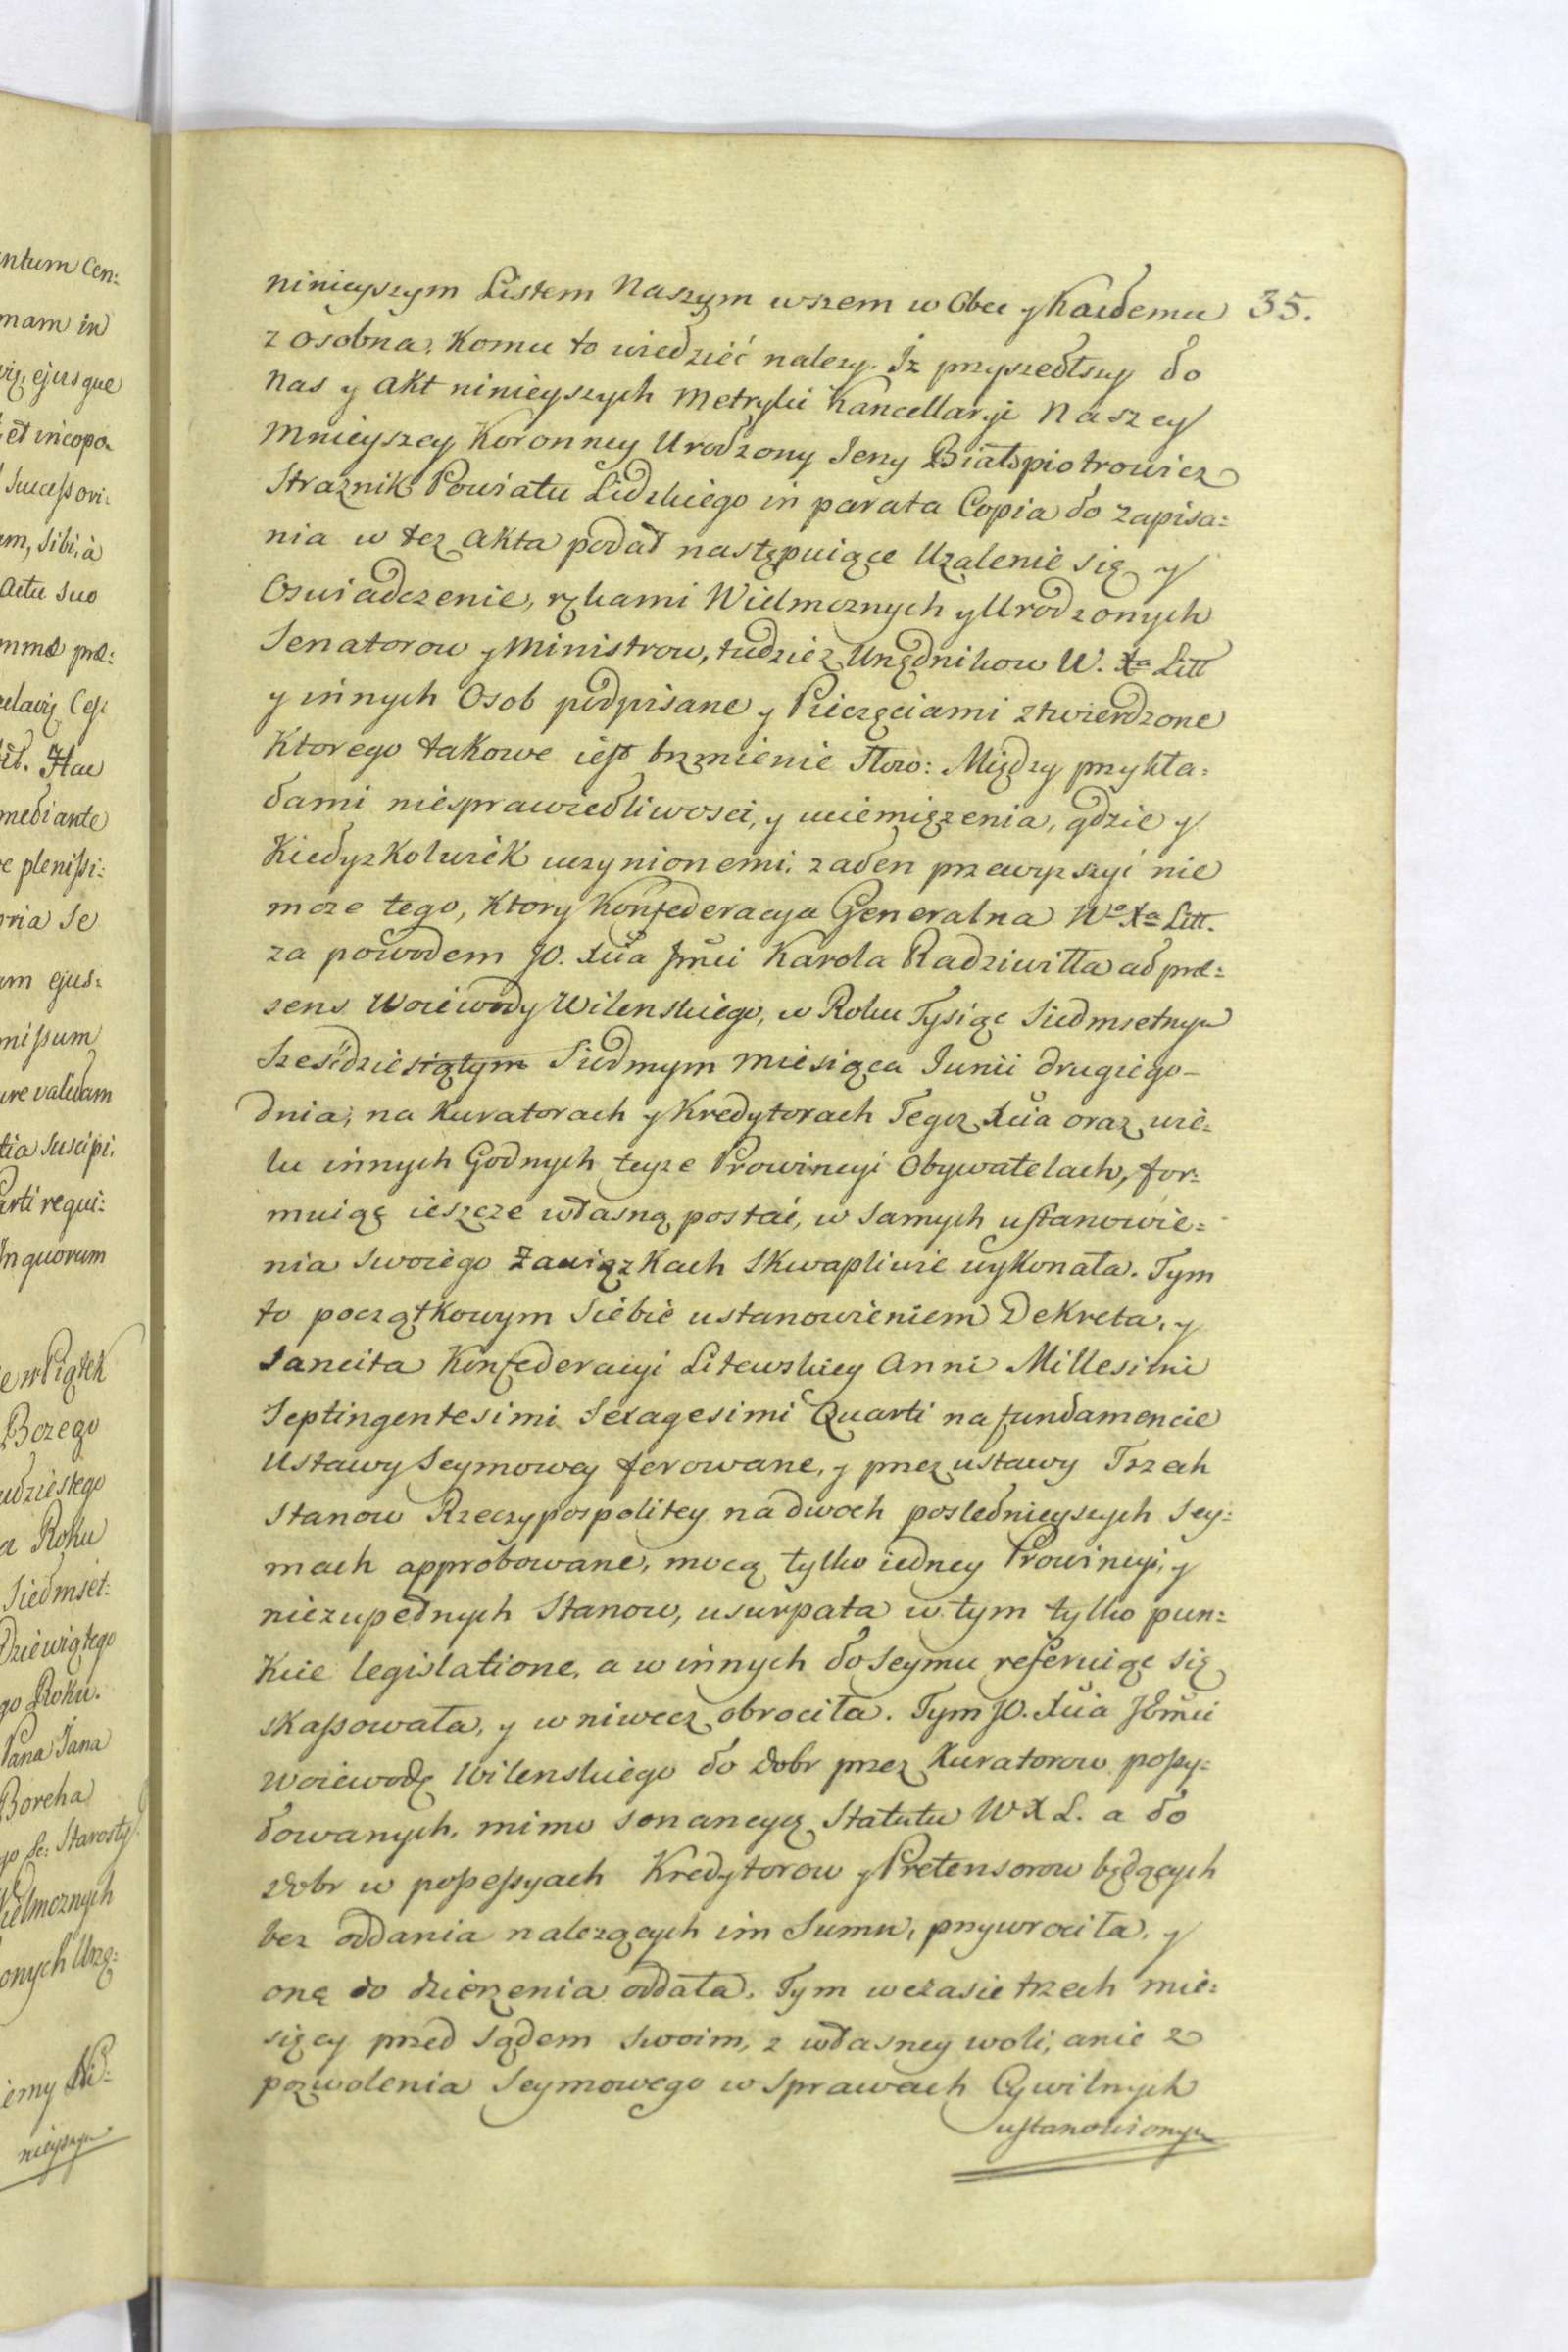 ntum Cen:
mam in
vią, ejusque
et incopo.
Successori:
m, Sibi, à
Actu suo
mmæ præ:
Hac
mediante
e plenissi:
ria Se
m ejus:
missum
ure validam
tia Suscipi:
Parti requi:
In quorum
Piątek
Bozego
udziestego
a Roku
Siedmset:
Dziewiątego
go Roku.
Pana Jana
Boreha
go &c: Starosty
ielmoznych
onych Urzę:
iemy Ni:
nieyszym
35.
ninieyszym Listem Naszym wszem w Obec y Kazdemu
z osobna, Komu to wiedzieć nalezy. Iz przyszedłszy do
Nas y Akt ninieyszych Metryki Kancellaryi Naszey
Mnieyszey Koronney Urodzony Jerzy Białopiotrowicz
Straznik Powiatu Lidzkiego in parata Copia do zapisa:
nia w tez Akta podał następuiące Uzalenie się y
Oswiadczenie, rękami Wielmoznych y Urodzonych
Senatorow y Ministrow, tudziez Urzędnikow W. Xa Litt
y innych Osob podpisane y Pieczęciami ztwierdzone
Ktorego takowe iest brzmienie Słow: Między przykła:
dami niesprawiedliwosci, y uciemięzenia, gdzie y
Kiedyzkolwiek uczynionemi, zaden przewyzszyć nie
moze tego, Ktory Konfederacya Generalna Wo Xa Litt.
za powodem JO. Xcia Jmci Karola Radziwiłła ad præ:
sens Woiewody Wilenskiego, w Roku Tysiąc Siedmsetnym
Sześćdziesiątym Siedmym Miesiąca Junii drugiego
dnia, na Kuratorach y Kredytorach Tegoz Xcia oraz wie:
lu innych Godnych teyze Prowincyi Obywatelach, for:
muiąc ieszcze własną postać, w samych ustanowie:
nia swoiego Zawiązkach Skwapliwie wykonała. Tym
to początkowym Siebie ustanowieniem Dekreta, y
Sancita Konfederacyi Litewskiey Anni Millesimi
Septingentesimi Sexagesimi Quarti na fundamencie
Ustawy Seymowey ferowane, y przez ustawy Trzech
Stanow Rzeczypospolitey na dwoch poslednieyszych Sey:
mach approbowane, mocą tylko iedney Prowincyi, y
niezupełnych Stanow, usurpata w tym tylko pun:
Kcie legislatione, a w innych do Seymu referuiąc się
skassowała, y w niwecz obrociła. Tym JO. Xcia JEmci
Woiewodę Wilenskiego do Dobr przez Kuratorow possy:
dowanych, mimo sonancyą Statutu W X L. a do
Dobr w possessyach Kredytorow y Pretensorow będących
bez oddania nalezących im Summ, przywrociła, y
onę do dzierzenia oddała. Tym w czasie trzech mie:
sięcy przed Sądem swoim, z własney woli, anie z
pozwolenia Seymowego w Sprawach Cywilnych
ustanowionym